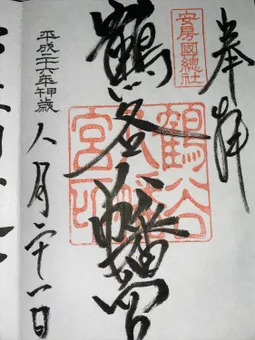 奉拝
安房國總社
鶴谷八幡宮
鶴谷八幡宮印
平成二六年 歳
八月二十一日